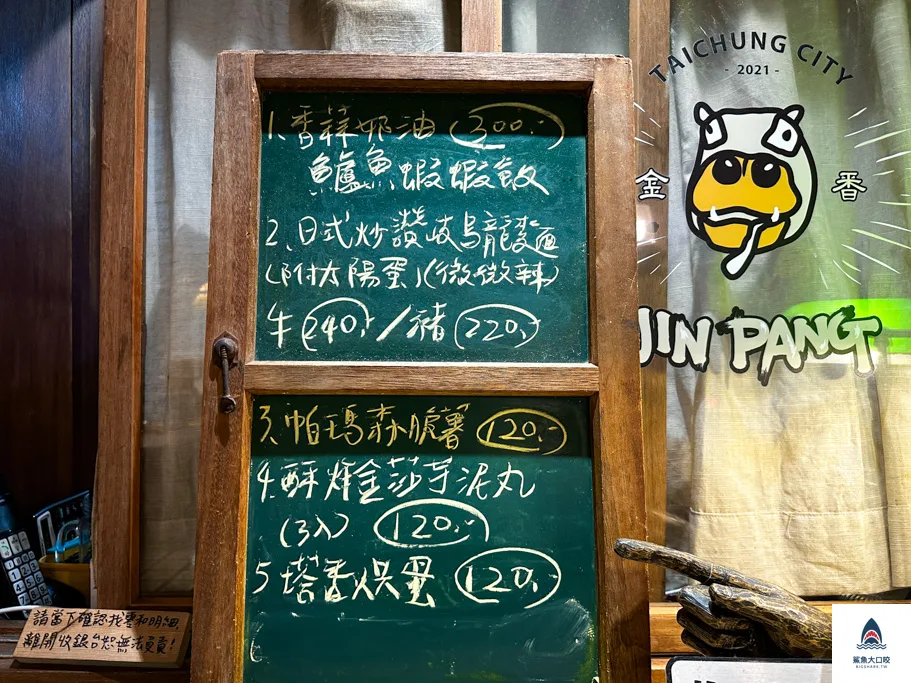 1、香蒜奶油 300.-
鱸魚蝦蝦飯
2、日式炒讚岐烏龍麵
(附太陽蛋)(微微辣)
牛 240.- / 豬 220.-
3、帕瑪森脆薯 120.-
4、酥炸金莎芋泥丸
(3入) 120.-
5、塔香烘蛋 120.-
TAICHUNG CITY
- 2021 -
金 番
JIN PANGT
請當下確認找零和明細,
離開收銀台恕無法負責!
鯊魚大口咬
BIGSHARK.TW